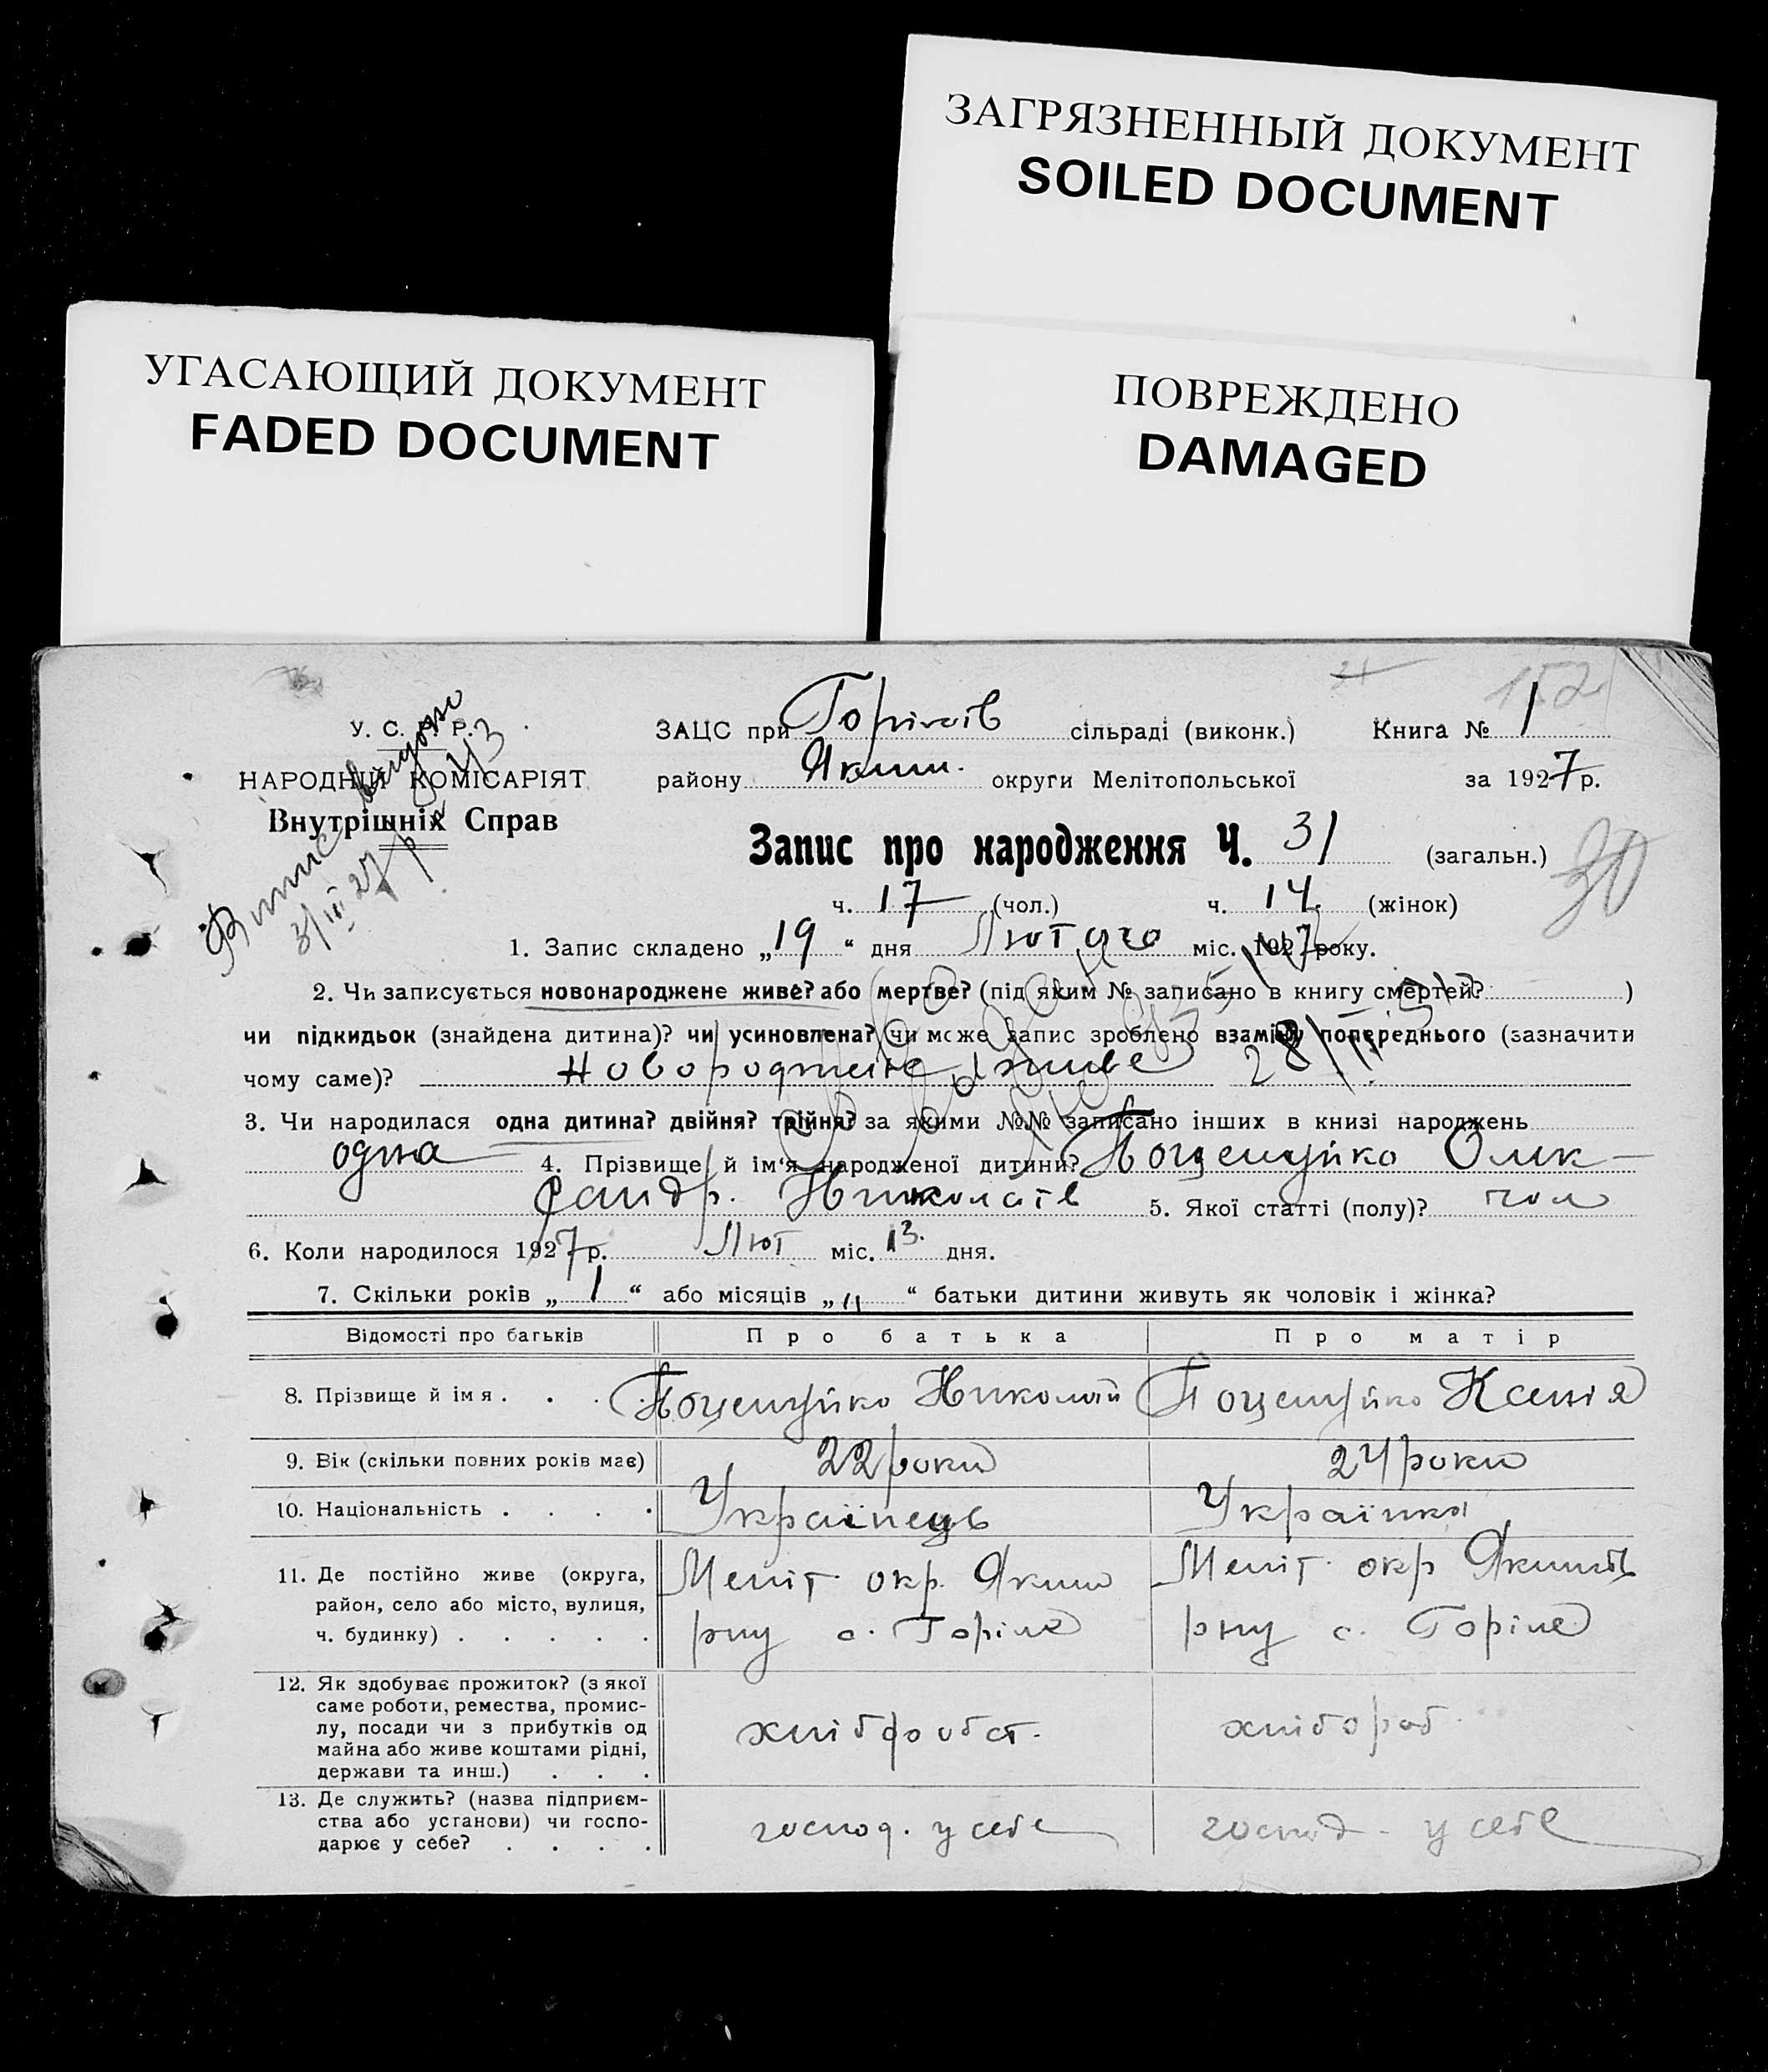 ЗАГРЯЗНЕННЫЙ ДОКУМЕНТ
SOILED DOCUMENT
УГАСАЮЩИЙ ДОКУМЕНТ
FADED DOCUMENT
ПОВРЕЖДЕНО
DAMAGED
152
У. С. Р. Р.
НАРОДНІЙ КОМІСАРІЯТ
Внутрішніх Справ
ЗАЦС при Горілів сільраді (виконк.) Книга № 1
району Яким. округи Мелітопольської за 1927 р.
Запис про народження Ч. 31 (загальн.)
30
ч. 17 (чол.) ч. 14 (жінок)
1. Запис складено „19“ дня Лютого міс. 1927 року.
2. Чи записується новонароджене живе? або мертве? (під яким № записано в книгу смертей? )
чи підкидьок (знайдена дитина)? чи усиновлена? чи може запис зроблено взамін попереднього (зазначити
чому саме)? живе
3. Чи народилася одна дитина? двійня? трійня? за якими №№ записано інших в книзі народжень
одна 4. Прізвище й ім'я народженої дитини? Поцелуйко Олик-
сандр. Николаїв 5. Якої статті (полу)? чол
6. Коли народилося 1927 р. Лют міс. 13. дня.
7. Скільки років „1“ або місяців „ “ батьки дитини живуть як чоловік і жінка?
Відомості про батьків Про батька Про матір
8. Прізвище й ім я . . . Поцелуйко Николай Поцелуйко Ксенія
9. Вік (скільки повних років має) 22 роки 24 роки
10. Національність . . . . Українець Українка
11. Де постійно живе (округа, район, село або місто, вулиця, ч. будинку) . . . . .
Меліт. окр. Яким Меліт. окр Яким
рну с. Горіле рну с. Горіле
12. Як здобуває прожиток? (з якої
саме роботи, ремества, промис-
лу, посади чи з прибутків од
майна або живе коштами рідні,
держави та инш.) . . .
хлібороб.
13. Де служить? (назва підприєм-
ства або установи) чи госпо-
дарює у себе? . . . .
господ. у себе господ. у себе